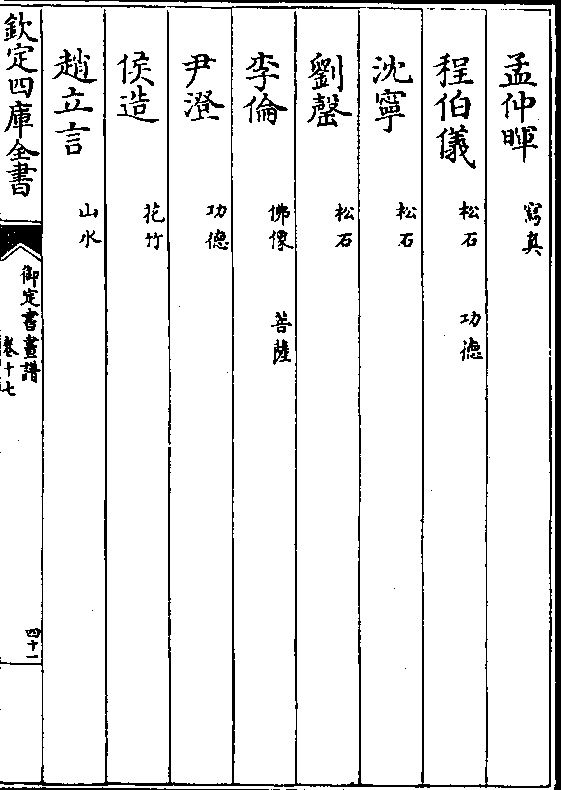 孟仲暉 寫真
程伯儀 松石 功德
沈寧 松石
劉罄 松石
李倫 佛像 菩薩
尹澄 功德
侯造 花竹
趙立言 山水
欽定四庫全書 御定書畫譜 卷十七 四十一